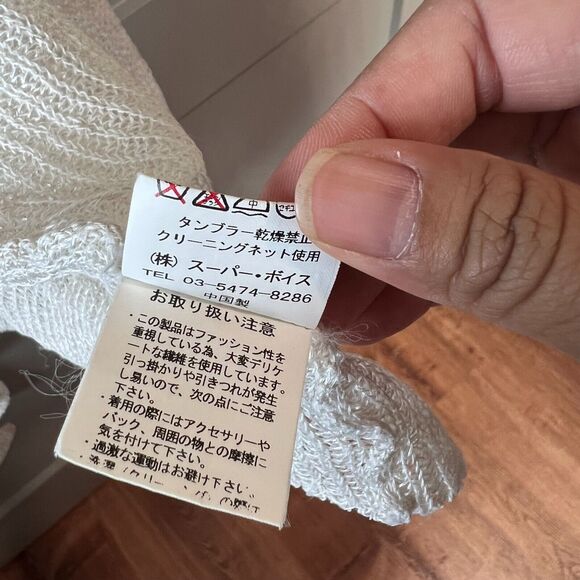 中
タンブラー乾燥禁止
クリーニングネット使用
(株) スーパー・ボイス
TEL 03-5474-8286
中国製
お取り扱い注意
・この製品はファッション性を
重視している為、大変デリケ
ートな繊維を使用しています。
引っ掛かりや引きつれが発生
し易いので、次の点にご注意
下さい。
・着用の際にはアクセサリーや
バック、周囲の物との摩擦に
気を付けて下さい。
・過激な運動はお避け下さい。